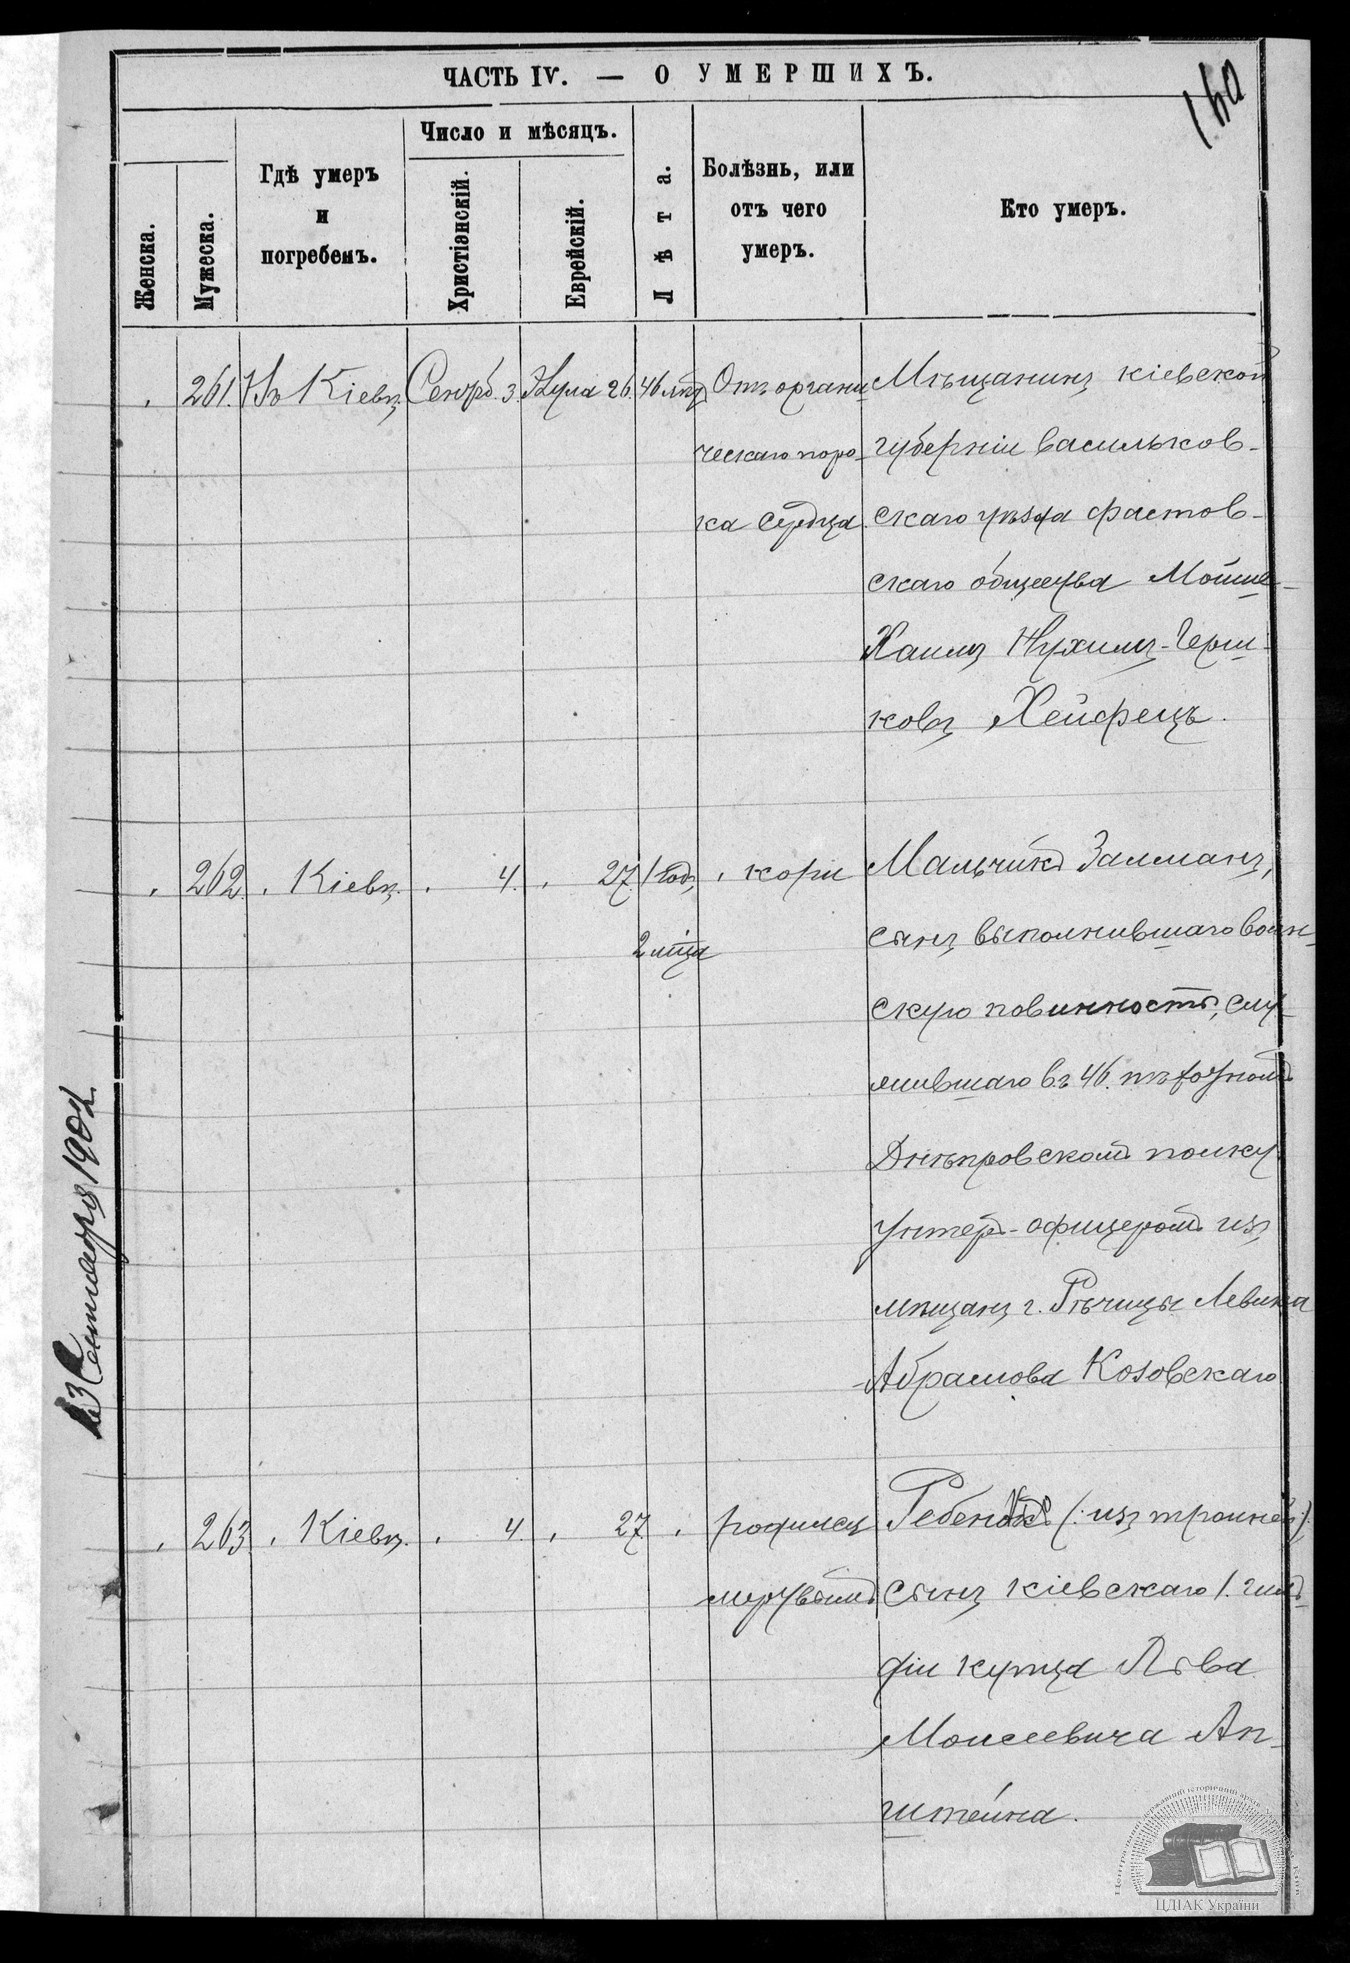 ЧАСТЬ IV. — О УМЕРШИХЪ.
140
Женска.
Мужеска.
Гдѣ умеръ
и
погребенъ.
Число и мѣсяцъ.
Христіанскій.
Еврейскій.
Лѣта.
Болѣзнь, или
отъ чего
умеръ.
Кто умеръ.
261. Въ Кіевѣ Сентб. 3. Элула 26. 46 лѣтъ Отъ органи- Мѣщанинъ кіевской
ческаго поро- губерніи васильков-
ка сердца. скаго уѣзда фастов-
скаго общества Мойше-
Хаимъ Нухимъ-Герш-
ковъ Хейфецъ.
262. " Кіевѣ. " 4. " 27. 1 годъ, " кори Мальчикъ Залманъ,
2 мѣца сынъ выполнившаго воин-
скую повинность, слу-
жившаго въ 46. пѣхотномъ
Днѣпровскомъ полку
унтеръ-офицеромъ изъ
мѣщанъ г. Рѣчицы Левика
Абрамова Козовскаго
263. " Кіевѣ. " 4. " 27. " родился Ребенокъ (: изъ тройней :)
мертвымъ сынъ кіевскаго 1. гиль-
діи купца Льва
Моисеевича Ап-
штейна.
Сентября 1902
ЦДІАК України